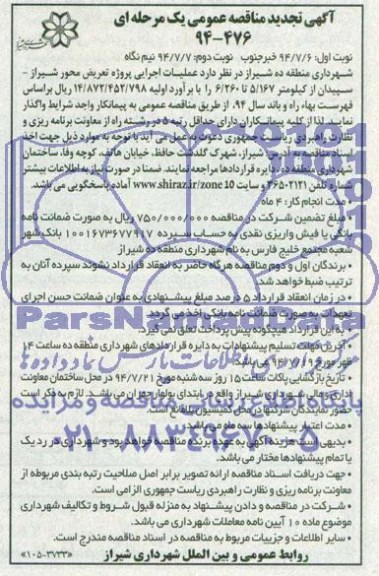 آگهی تجدید مناقصه عمومی یک مرحله ای
۹۴-۴۷۶
نوبت اول: ۹۴/۷/۶ خبرجنوب نوبت دوم: ۹۴/۷/۷ نیم نگاه
شهرداری منطقه ده شیراز در نظر دارد عملیات اجرایی پروژه تعریض محور شیراز -
سپیدان از کیلومتر ۵/۱۶۷ تا ۶/۲۶۰ را با برآورد اولیه ۱۴/۸۷۲/۴۵۲/۷۹۸ ریال براساس
فهرست بهاء راه و باند سال ۹۴، از طریق مناقصه عمومی به پیمانکار واجد شرایط واگذار
نماید. لذا از کلیه پیمانکاران دارای حداقل رتبه ۵ در رشته راه از معاونت برنامه ریزی و
نظارت راهبردی ریاست جمهوری دعوت به عمل می آید با توجه به موارد ذیل جهت اخذ
اسناد مناقصه به آدرس: شیراز، شهرک گلدشت حافظ، خیابان هاتف، کوچه وفا، ساختمان
شهرداری منطقه ده، دایره قراردادها مراجعه نمایند. ضمنا در صورت نیاز به اطلاعات بیشتر
شماره تلفن ۲۱۲۱-۳۶۵ و سایت www.shiraz.ir/zone10 آماده پاسخگویی می باشد.
- مدت انجام کار: ۴ ماه
- مبلغ تضمین شرکت در مناقصه ۷۵۰/۰۰۰/۰۰۰ ریال به صورت ضمانت نامه
بانکی یا فیش واریزی نقدی به حساب سپرده ۱۰۰۱۶۷۳۶۷۷۹۱۷ بانک شهر
شعبه مجتمع خلیج فارس به نام شهرداری منطقه ده شیراز
- برندگان اول و دوم مناقصه هرگاه حاضر به انعقاد قرارداد نشوند سپرده آنان به
ترتیب ضبط خواهد شد.
- در زمان انعقاد قرارداد ۵ درصد مبلغ پیشنهادی به عنوان ضمانت حسن اجرای
تعهدات به صورت ضمانت نامه بانکی اخذ می گردد.
- به این قرارداد هیچگونه پیش پرداخت تعلق نمی گیرد.
- آخرین مهلت تسلیم پیشنهادات به دایره قراردادهای شهرداری منطقه ده ساعت ۱۴
ظهر مورخ می باشد.
- تاریخ بازگشایی پاکات ساعت ۱۵ روز سه شنبه مورخ ۹۴/۷/۲۱ در محل ساختمان معاونت
اداری و مالی شهرداری شیراز واقع در ابتدای بولوار چمران می باشد. لازم به ذکر است
حضور نمایندگان شرکتها در محل کمیسیون بلامانع است.
- مدت اعتبار پیشنهادها سه ماه می باشد.
- بدیهی است هزینه آگهی به عهده برنده مناقصه خواهد بود و شهرداری در رد یک
یا تمام پیشنهادها مختار می باشد.
- جهت دریافت اسناد مناقصه ارائه تصویر برابر اصل صلاحیت رتبه بندی مربوطه از
معاونت برنامه ریزی و نظارت راهبردی ریاست جمهوری الزامی است.
- شرکت در مناقصه و دادن پیشنهاد به منزله قبول شروط و تکالیف شهرداری
موضوع ماده ۱۰ آیین نامه معاملات شهرداری می باشد.
- سایر اطلاعات و جزییات مربوط به مناقصه در اسناد مناقصه مندرج است.
روابط عمومی و بین الملل شهرداری شیراز «۱۰۵-۳۷۳۳»